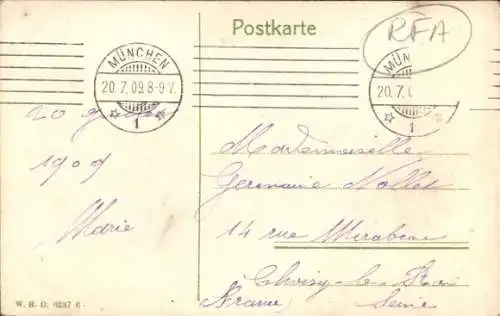 Postkarte
RFA
MÜNCHEN
20.7.09.8-9V.
1
MÜN
20.7.0
1
20
1909
Marie
Mademoiselle
Germaine Nollet
14 rue Mirabeau
Choisy-le-Roi
(France) Seine
W. H. D. 6237